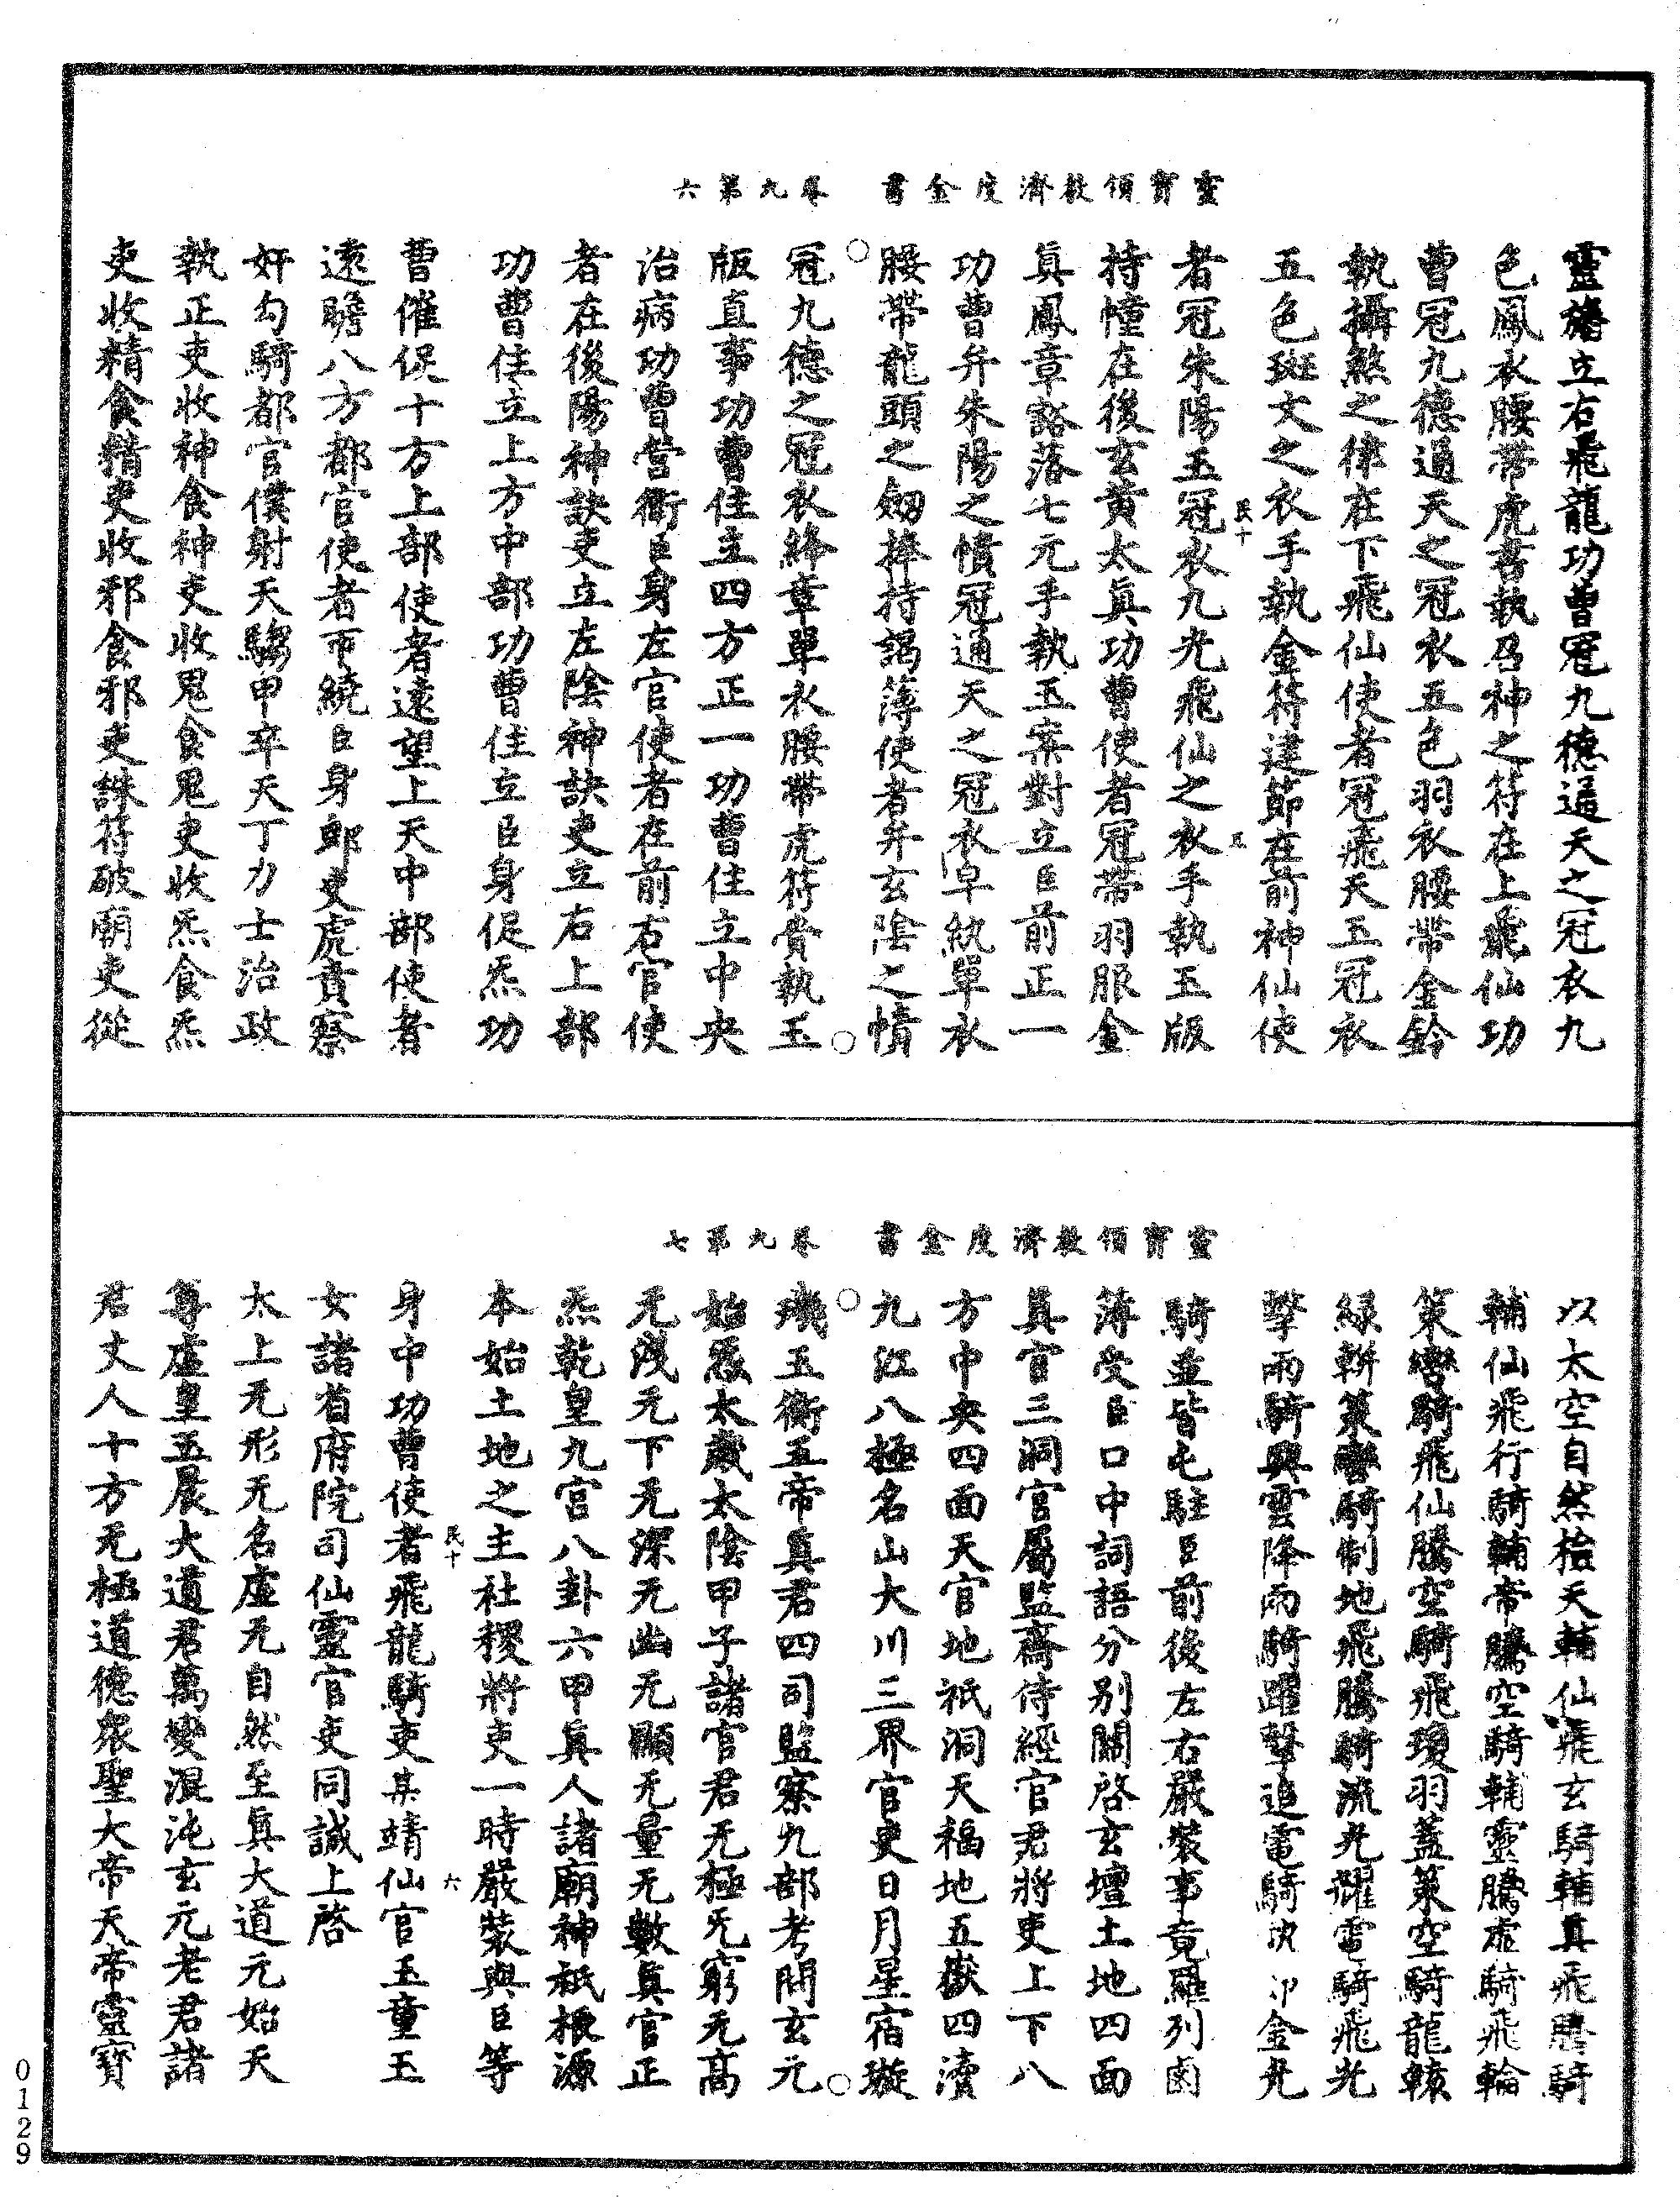 靈寶領教濟度金書　卷九第六
靈旛立右飛龍功曹冠九德通天之冠衣九
色鳳衣腰帶虎書執召神之符在上飛仙功
曹冠九德通天之冠衣五色羽衣腰帶金鈴
執攝煞之律在下飛仙使者冠飛天玉冠衣
五色斑文之衣手執金符建節在前神仙使
民十　五
者冠朱陽玉冠衣九光飛仙之衣手執玉版
持幢在後玄黄太真功曹使者冠帶羽服金
真鳳章豁落七元手執玉案對立臣前正一
功曹弁朱陽之幘冠通天之冠衣皁紈單衣
腰帶龍頭之劒捧持謁薄使者弁玄陰之幘
冠九德之冠衣絳章單衣腰帶虎符賫執玉
版直事功曹住立四方正一功曹住立中央
治病功曹營衛臣身左官使者在前右官使
者在後陽神訣吏立左陰神訣吏立右上部
功曹住立上方中部功曹住立臣身促炁功
曹催促十方上部使者遠望上天中部使者
遠瞻八方都官使者帀繞臣身郎吏虎賁察
奸勾騎都官僕射天騶甲卒天丁力士治政
執正吏收神食神吏收鬼食鬼吏收炁食炁
吏收精食精吏收邪食邪吏誅符破廟吏從
靈寶領教濟度金書　卷九第七
以太空自然抬天輔仙飛玄騎輔真飛騰騎
輔仙飛行騎輔帝騰空騎輔靈騰虛騎飛輪
策轡騎飛仙騰空騎飛瓊羽蓋策空騎龍轅
綠軿策轡騎制地飛騰騎流光耀電騎飛光
擊雨騎興雲降雨騎躍擊追電騎金光
騎並皆屯駐臣前後左右嚴裝事竟羅列鹵
薄受臣口中詞語分別關啓玄壇土地四面
真官三洞官屬監齋侍經官君將吏上下八
方中央四面天官地祇洞天福地五嶽四瀆
九江八極名山大川三界官吏日月星宿璇
璣玉衡五帝真君四司監察九部考問玄元
始炁太歲太陰甲子諸官君无極无窮无高
无淺无下无深无幽无顯无量无數真官正
炁乾皇九宮八卦六甲真人諸廟神祇根源
本始土地之主社稷將吏一時嚴裝與臣等
民十　六
身中功曹使者飛龍騎吏某靖仙官玉童玉
女諸省府院司仙靈官吏同誠上啓
太上无形无名虛无自然至真大道元始天
尊虛皇玉晨大道君萬變混沌玄元老君諸
君丈人十方无極道德衆聖大帝天帝靈寶
0129